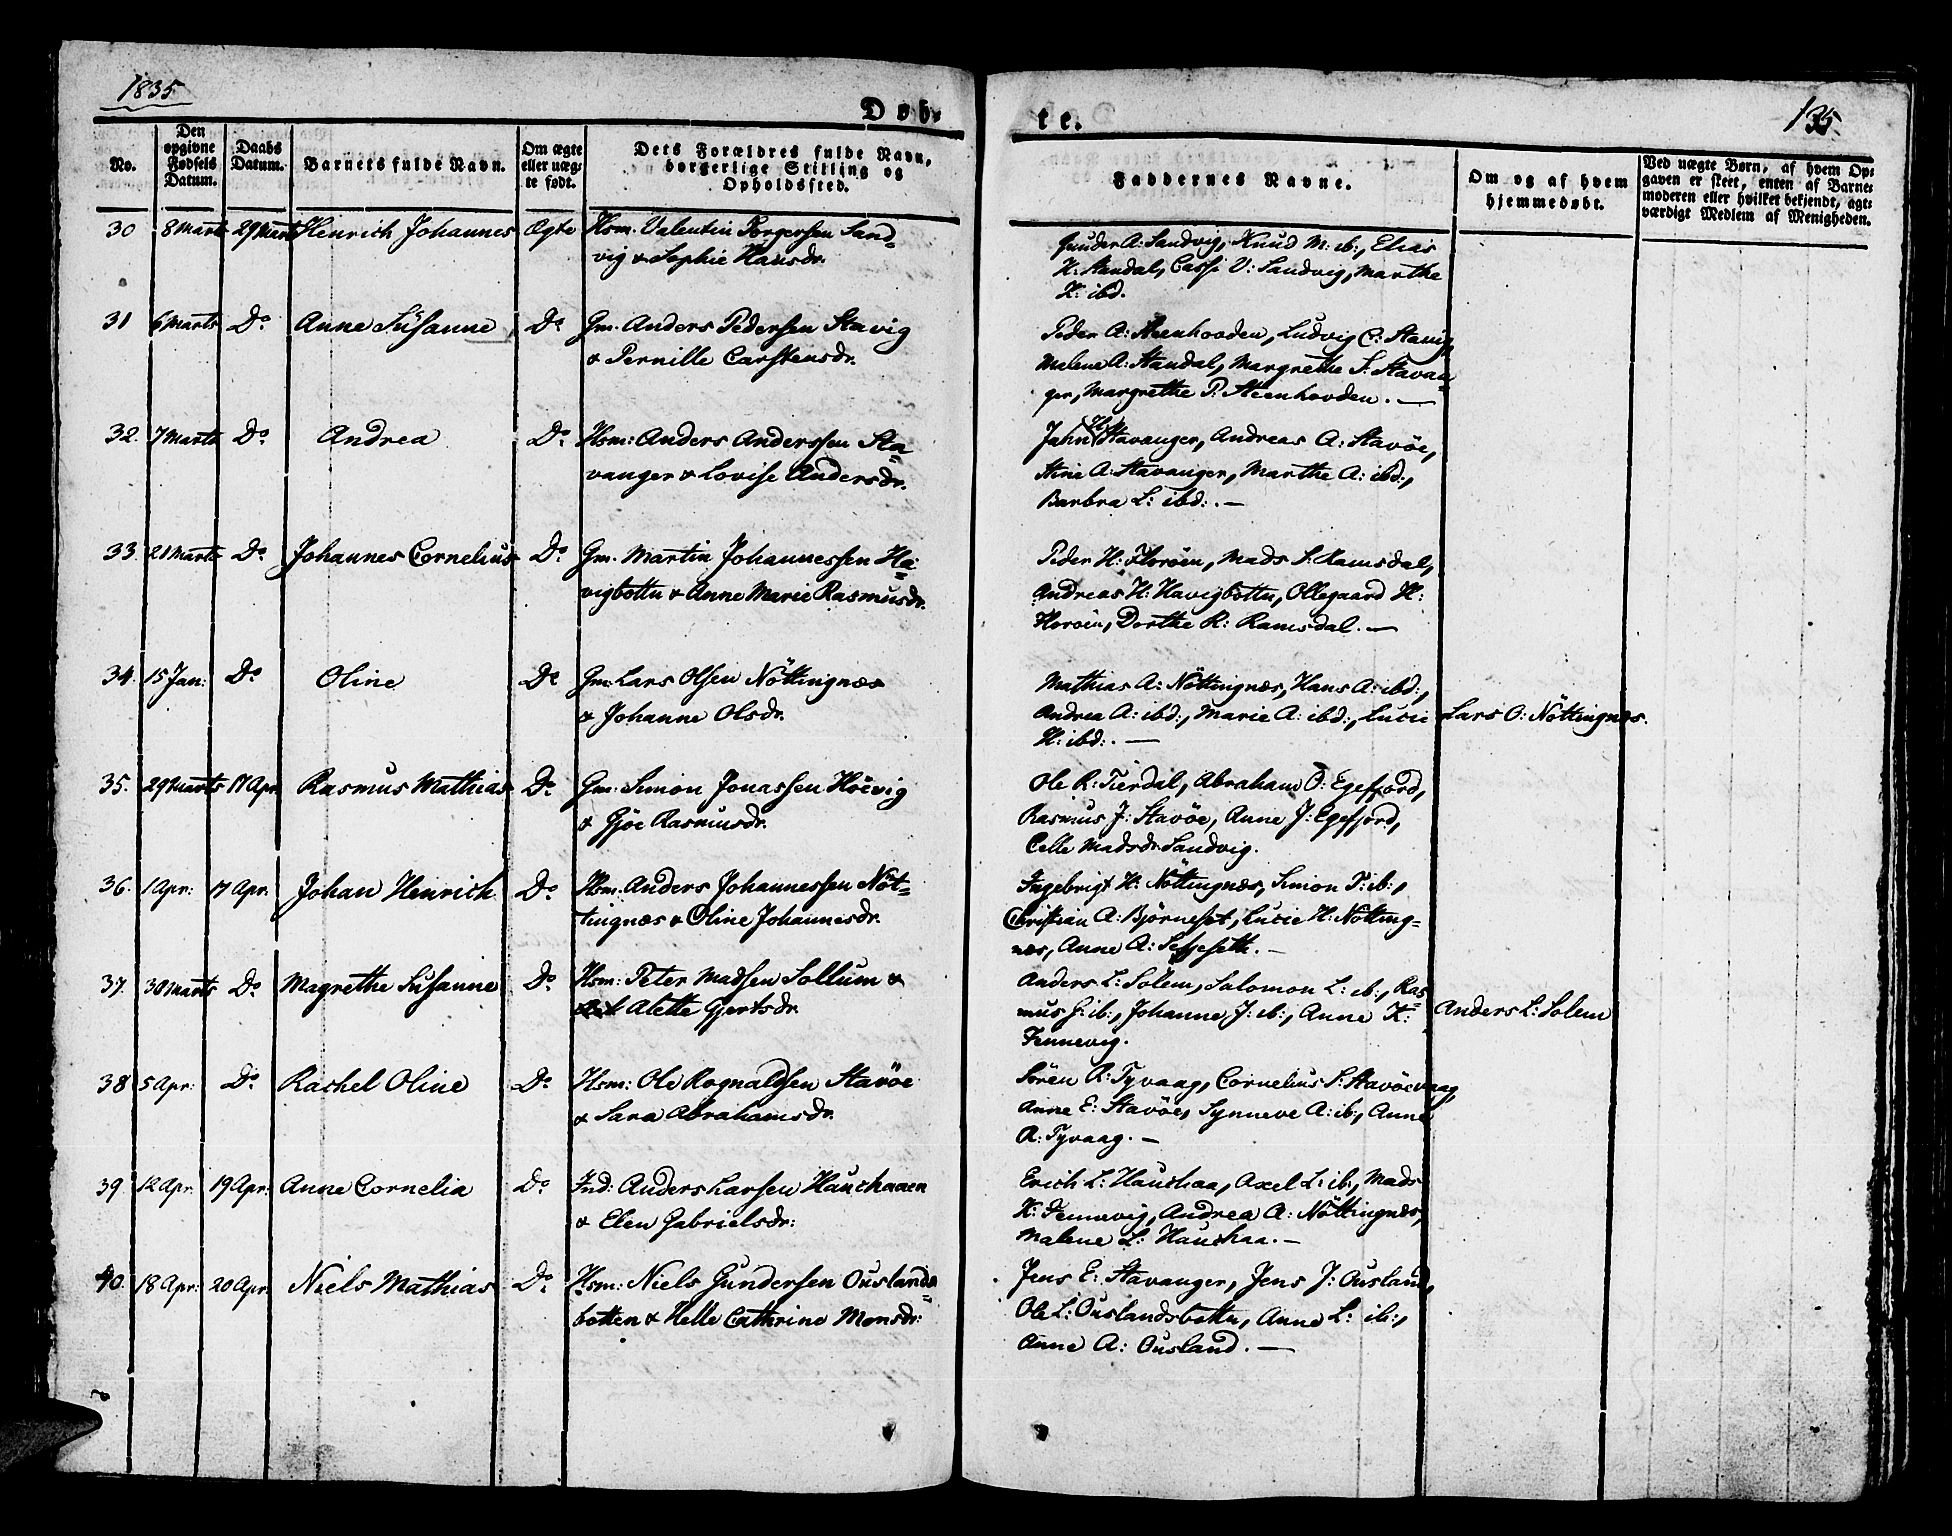 1835
Døb-
te.
135.
No.
Den opgivne Fødsels Datum.
Daabs Datum.
Barnets fulde Navn.
Om ægte eller uægte født.
Dets Forældres fulde Navn, borgerlige Stilling og Opholdssted.
Faddernes Navne.
Om og af hvem hjemmedøbt.
Ved uægte Børn, af hvem Op-
gaven er skeet, enten af Barne-
moderen eller hvilket bekjendt, agt-
værdigt Medlem af Menigheden.
30 8 Marts 29 Marts Henrich Johannes Ægte Hsm. Valentin Torgersen Sand-
vig & Sophie Hansdr.
Gunder A: Sandvig, Knud M: ib:, Elias
H: Standal, Cassi V: Sandvig, Marthe
H: ibd.
31 6 Marts Do. Anne Susanne Do. Gm. Anders Pedersen Stavig
& Pernille Carstensdr.
Peder A: Steenhovden, Ludvig C: Stavig,
Malene A: Standal, Margrethe S: Stavan-
ger, Margrethe P: Steenhovden. —
32. 7 Marts Do. Andrea Do. Hsm: Anders Anderssen Sta-
vanger & Lovise Andersdr.
Jahn H: Stavanger, Andreas A: Stavöe,
Stine A: Stavanger, Marthe A: ibd:,
Barbra L: ibd:. —
33. 21 Marts Do. Johannes Cornelius Do. Gm. Martin Johannessen Ha-
vigbotten & Anne Marie Rasmusdr.
Peder H: Floröen, Mads S: Ramsdal,
Andreas H: Havigbotten, Ollegaard H:
Floröen, Dorthe R: Ramsdal. —
34. 15 Jan: Do. Oline Do Gm: Lars Olsen Nöttingnæs
& Johanne Olsdr.
Mathias A: Nöttingnæs, Hans A: ibd:,
Andrea A: ibd:, Marie A: ibd:, Lucie
H: ibd:. —
Lars O: Nöttingnæs.
35. 29 Marts 17 Apr Rasmus Mathias Do. Gm. Simon Jonassen Höevig
& Gjöe Rasmusdr.
Ole R: Tierdal, Abraham O: Egefjord,
Rasmus J: Stavöe, Anne J: Egefjord,
Celle Madsdr. Sandvig.
36. 1 Apr: 17 Apr. Johan Henrich Do. Hsm. Anders Johannessen Nöt-
tingnæs & Oline Johannesdr.
Ingebrigt H: Nöttingnæs, Simon P: ib:,
Christian A: Björneset, Lucie H: Nötting-
næs, Anne A: Sessesett. —
37. 30 Marts Do. Magrethe Susanne Do. Hsm: Peter Madsen Sollum &
Alette Gjertsdr.
Anders L: Solem, Salomon L: ib:, Ras-
mus G: ib:, Johanne J: ib:, Anne K:
Fennevig.
Anders L: Solem
38 5 Apr: Do. Rachel Oline Do. Hsm: Ole Rognaldsen Stavöe
& Sara Abrahamsdr.
Sören R: Tyvaag, Cornelius S: Stavöevaag,
Anne E: Stavöe, Synneve A: ib:, Anne
R: Tyvaag. —
39 12 Apr. 19 Apr: Anne Cornelia Do. Ind: Anders Larsen Hauchaaen
& Elen Gabrielsdr:
Erich L: Hauchaa, Axel L: ib:, Mads
K: Fennevig, Andrea A: Nöttingnæs,
Malene L: Hauchaa. —
40. 18 Apr: 20 Apr. Niels Mathias Do. Hsm: Niels Gundersen Ouslands-
botten & Helle Cathrine Monsdr:
Jens E: Stavanger, Jens J: Ousland,
Ole L: Ouslandsbotten, Anne L: ib:,
Anne A: Ousland. —